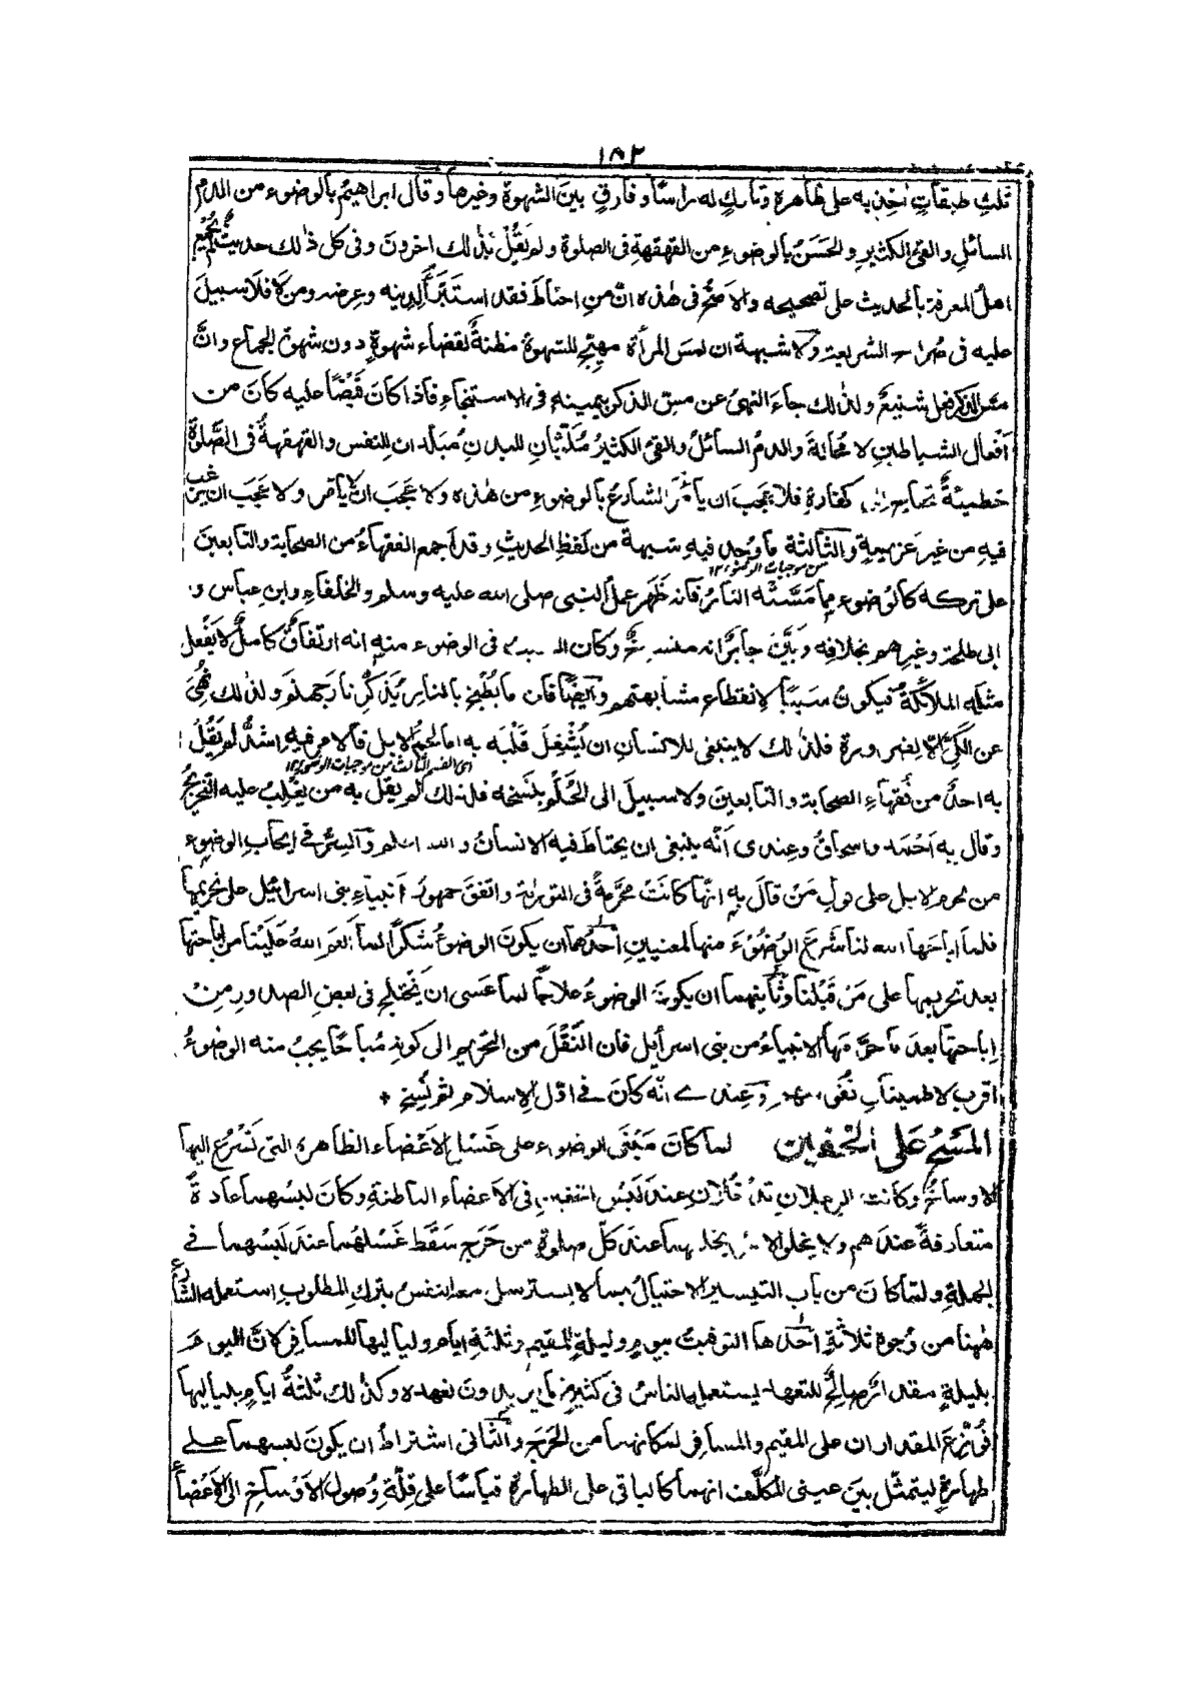 ١٨٢
ثلث طبقاتٍ اٰخِذٍ به على ظاهره وتاركٍ له راسًا وفارقٍ بينَ الشهوة وغيرها وقال ابراهيم بالوضوء من الدم
السائلِ والقئ الكثيرِ والحَسَنُ بالوضوءِ من القهقهةِ فى الصلوة ولم يَقُلْ بذٰلك اٰخرونَ وفى كل ذٰلك حديثٌ لم يُجْمِع
اهلُ المعرفة بالحديث على تصحيحه والاصحُّ فى هٰذه انَّ منِ احتاطَ فقد استَبْرَأَ لدينه وعِرضه ومن لا فلا سبيلَ
عليه فى صُراح الشريعة ولا شبهة ان لمسَ المرأةِ مهيّجٌ للشهوة مظنةٌ لقضاء شهوةٍ دون شهوة الجماع وانَّ
مسَّ الذكر فعلٌ شنيعٌ ولذٰلك جاءَ النهىُ عن مسِّ الذكر بيمينه فى الاستنجاءِ فاذا كانَ قبضًا عليه كانَ من
اَفْعال الشياطينِ لا مُحالةَ والدمُ السائلُ والقئ الكثيرُ مُلَوِّثانِ للبدنِ مُبَلِّدانِ للنفس والقهقهةُ فى الصَّلٰوة
خطيئةٌ تحتاج الى كفارةٍ فلا عجبَ ان يأمُرَ الشارعُ بالوضوءِ من هٰذه ولا عجبَ ان لا يأمر ولا عجبَ ان يُرَغِّب
فيه من غير عزيمةٍ والثالثة ما وُجِد فيه شبهة من لفظِ الحديثِ وقد اجمع الفقهاءُ من الصحابة والتابعينَ
من موجبات الوضوء ١٢
على تركه كالوضوء مما مَسَّتْه النارُ فانه ظَهَر عملُ النبى صلى الله عليه وسلم والخلفاءِ وابنِ عباس و
ابى طلحة وغيرهم بخلافه وبَيَّنَ جابرٌ انه منسوخٌ وكان السبب فى الوضوء منه انه ارتفاقٌ كاملٌ لا يَفْعل
مثلَه الملائكةُ فيكونُ سببًا لانقطاع مشابهتهم وايضًا فان ما يُطْبَخُ بالنارِ يُذَكِّرُ نارَ جهنمَ ولذٰلك نُهِىَ
عن الكَىِّ الا لضرورة فلذٰلك لا ينبغى للانسانِ ان يُشْغِلَ قَلْبَه به اما لحمُ الابل فالامر فيهِ اشدُّ لم يَقُلْ
اى القسم الثالث من موجبات الوضوء ١٢
به احدٌ من فقهاءِ الصحابة والتابعينَ ولا سبيلَ الى الحُكْم بنَسْخه فلذٰلك لم يقُل به من يَغْلِبُ عليه التخريجُ
وقال به اَحْمَد واسحاقُ وعِندى اَنّه ينبغى ان يحتاطَ فيه الانسانُ والله اعلم والسِرُّ فى ايجاب الوضوءِ
من لحوم الابل على قول مَنْ قالَ به انّها كانَتْ محرّمةً فى التورٰىة واتفقَ جمهور انبياءِ بنى اسرائيل على تحريمها
فلما اباحَها الله لنا شُرِعَ الوُضُوْءَ منها لمعنيينِ اَحَدُهما ان يكونَ الوضوءُ شُكرًا لما اَنعَمَ اللهُ عَلَيْنا من اباحتها
بعد تحريمها على مَنْ قَبْلَنا وثانيهما ان يكونَ الوضوءُ علاجًا لما عَسى ان يَخْتلِجَ فى بعض الصدورِ من
اِباحتها بعدَ ما حرَّمها الانبياءُ من بنى اسرائيل فان النَّقْلَ من التحريم الى كونه مُباحًا يجبُ منه الوضوءُ
اقربُ لاطمينانِ نفوسهم وعِندى انّه كانَ فى اوّل الاِسلام ثم نُسِخَ ٭
المَسْحُ عَلَى الخُفَّيْنِ لما كانَ مَبْنَى الوضوء على غَسْل الاَعْضاء الظاهرة التى تَسْرُعُ اليها
الاوساخُ وكانت الرجلانِ تدخُلان عندَ لُبسِ الخفينِ فى الاَعضاء الباطنةِ وكانَ لبسُهما عادةً
متعارفةً عندهم ولا يخلو الامر بخلعهما عند كلّ صلوةٍ من حَرَجٍ سَقَط غَسْلهُما عند لَبْسِهما فى
الجملةِ ولما كانَ من باب التيسير الاحتيالُ بما لا يسترسل معه النفسُ بتركِ المطلوبِ استعمله الشارعُ
هٰهنا من وُجوهٍ ثلاثةٍ اَحَدُها التوقيتُ بيومٍ وليلةٍ للمقيم وثلثةِ ايام ولياليها للمسافرِ لانَّ اليومَ
بليلةٍ مقدارٌ صالحٌ للتعهد يستعمله الناسُ فى كثيرٍ مما يريدون تعهده وكذٰلك ثلثةُ ايامٍ بلياليها
فوُزِّعَ المقداران على المقيم والمسافر لمكانهما من الحَرَج والثانى اشتراطُ ان يكونَ لبسهما على
طهارةٍ ليتمثّل بينَ عينى المكلَّف انهما كالباقى على الطهارة قياسًا على قِلّةِ وُصولِ الاَوْساخ الى الاَعْضاءِ